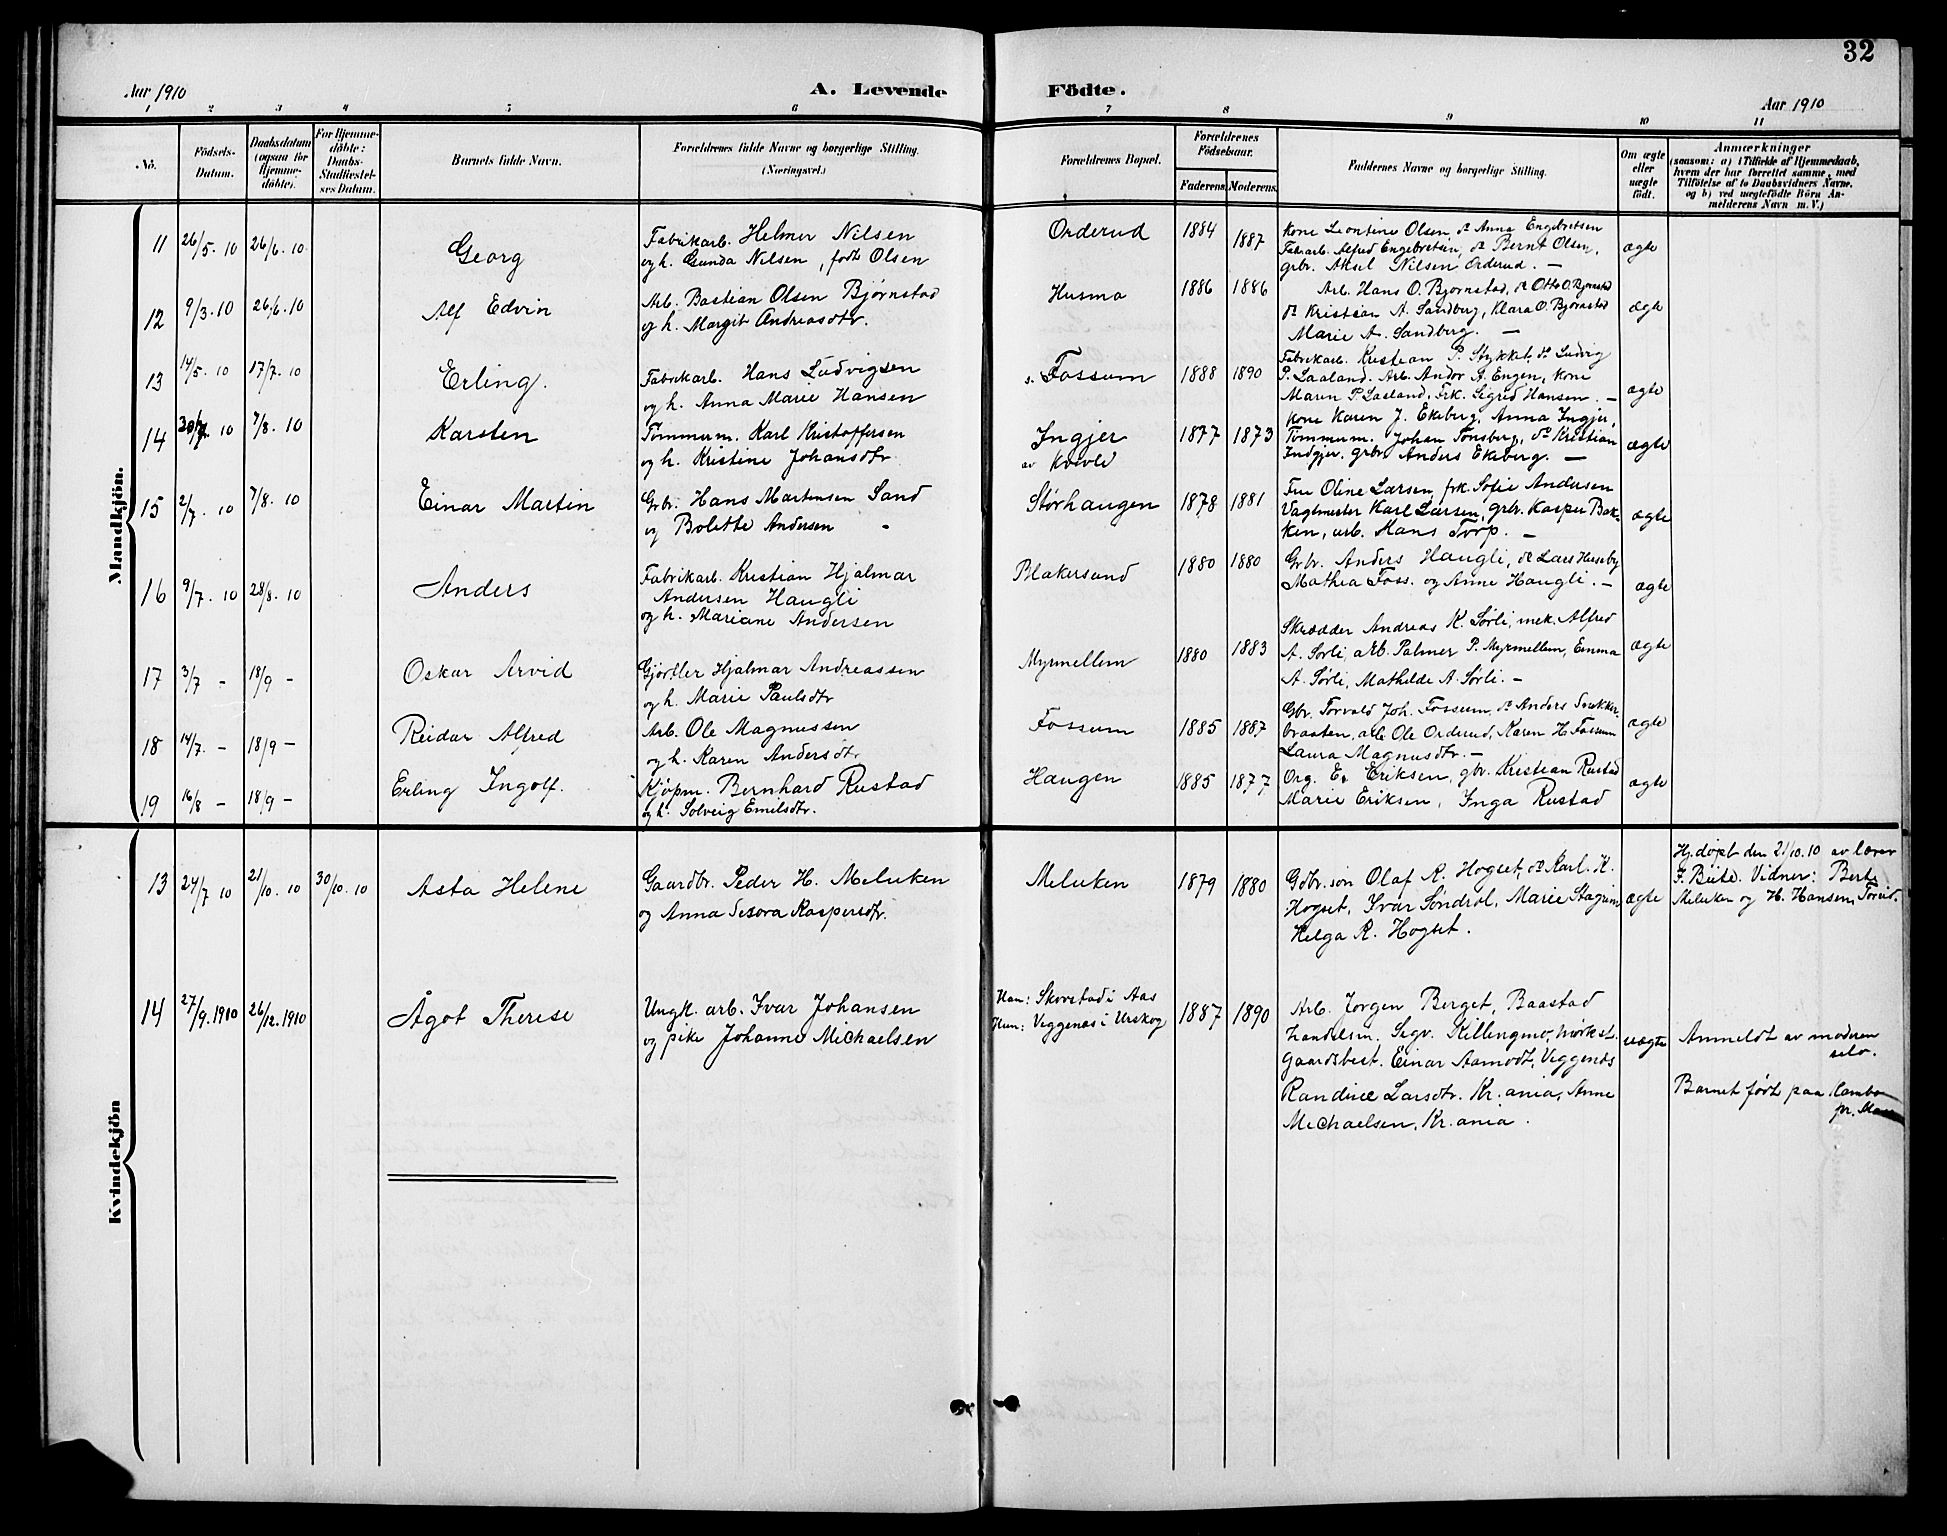 32
Aar 1910
A. Levende
Födte.
Aar 1910
1 2 3 4 5 6 7 8 9 10 11
No.
Födsels-
Datum.
Daabsdatum
(ogsaa for
Hjemme-
döbte).
For Hjemme-
döbte:
Daabs-
Stadfæstel-
ses Datum.
Barnets fulde Navn.
Forældrenes fulde Navne og borgerlige Stilling.
(Næringsvei.)
Forældrenes Bopæl.
Forældrenes
Födselsaar.
Faderens.
Moderens.
Faddernes Navne og borgerlige Stilling.
Om ægte
eller
uægte
födt.
Anmærkninger
(saasom: a) i Tilfælde af Hjemmedaab,
hvem der har forrettet samme, med
Tilföielse af to Daabsvidners Navne,
og b) ved uægtefödte Börn An-
melderens Navn m. V.)
Mandkjön.
11 26/5. 10 26/6. 10 Georg
Fabrikarb. Helmer Nilsen
og h. Gunda Nilsen, født Olsen
Orderud 1884 1887
Kone Leontine Olsen, do Anna Engebretsen
Fabrarb. Alfred Engebretsen, do Bernt Olsen,
grbr. Aksel Nilsen Orderud. —
ægte
12 9/3. 10 26/6. 10 Alf Edvin
Arb. Bastian Olsen Bjørnstad
og h. Margit Andreasdtr.
Husmo 1886 1886
Arb. Hans O. Bjørnstad, do Otto O. Bjørnstad
do Kristian A. Sandberg, Klara O. Bjørnstad
Marie A. Sandberg. —
ægte
13 14/5. 10 17/7. 10 Erling.
Fabrikarb. Hans Ludvigsen
og h. Anna Marie Hansen
s. Fossum 1888 1890
Fabrikarb. Kristian P. Stykket, do Ludvig
P. Laaland. Arb. Andor A. Engen, kone
Maren P. Laaland, Frk. Sigrid Hansen. —
ægte
14 10 7/8. 10 Karsten
Tømmerm. Karl Kristoffersen
og h. Kristine Johansdtr
Ingjer
av Kvevld
1877 1873
Kone Karen J. Ekeberg, Anna Ingjer,
Tømmerm. Johan Tønsberg, do Kristian
Indgjer, grbr. Anders Ekeberg. —
ægte
15 2/7. 10 7/8. 10 Einar Martin
Grbr. Hans Martinsen Sand
og Bolette Andersen -
Størhaugen 1878 1881
Fru Oline Larsen, frk. Sofie Andersen
Vagtmester Karl Larsen, grbr. Kasper Bak-
ken, arb. Hans Torp. —
ægte
16 9/7. 10 28/8. 10 Anders
Fabrikarb. Kristian Hjalmar
Andersen Haugli
og h. Mariane Andersen
Blakersund 1880 1880
Grbr. Anders Haugli, do Lars Huseby
Mathea Foss. og Anne Haugli. —
ægte
17 3/7 - 18/9 - Oskar Arvid
Gjørtler Hjalmar Andreassen
og h. Marie Paulsdtr
Myrmellem 1880 1883
Skrædder Andreas K. Sørli, mek. Alfred
A. Sørli, arb. Palmer P. Myrmellem, Emma
A. Sørli, Mathilde A. Sørli. —
ægte
18 14/7. - 18/9 - Reidar Alfred
Arb. Ole Magnussen
og h. Karen Andersdtr
Fossum 1885 1887
Gbr. Torvald Joh. Fossum, do Anders Snekker-
braaten, arb. Ole Orderud, Karen H. Fossum
Laura Magnusdtr. —
ægte
19 16/8 - 18/9 - Erling Ingolf.
Kjøpm. Bernhard Rustad
og h. Solveig Emilsdtr.
Haugen 1885 1877
Org. E. Eriksen, gbr. Kristian Rustad
Marie Eriksen, Inga Rustad
ægte
Kvindekjön
13 24/7 10 21/10. 10 30/10. 10 Asta Helene
Gaardbr. Peder H. Melukken
og Anna Kaspersdtr.
Meluken 1879 1880
Gdbr.søn Olaf R. Hogset, do Karl. K.
Hogset, Ivar Søndrol, Marie
Helga R. Hogset.
ægte
Hj.døpt den 21/10.10 av lærer
Vidner: Berte
Meluken og H. Hansen,
14 27/9.1910 26/12.1910 Ågot Therese
Ungk. arb. Ivar Johansen
og pike Johanne Michaelsen
Han: Skovstad i Aas
Hun: Veggenæs i Urskog
1887 1890
Arb. Jørgen Berget, Baastad
Handelsm. Sigv. Killingmo, Mørkst.
Gaardsbest. Einar Aamodt, Veggenæs
Randine Larsdtr. Kr.ania, Anne
Michaelsen, Kr.ania.
uægte
Anmeldt av moderen
selv.
Barnet født paa Kambo
pr. Moss